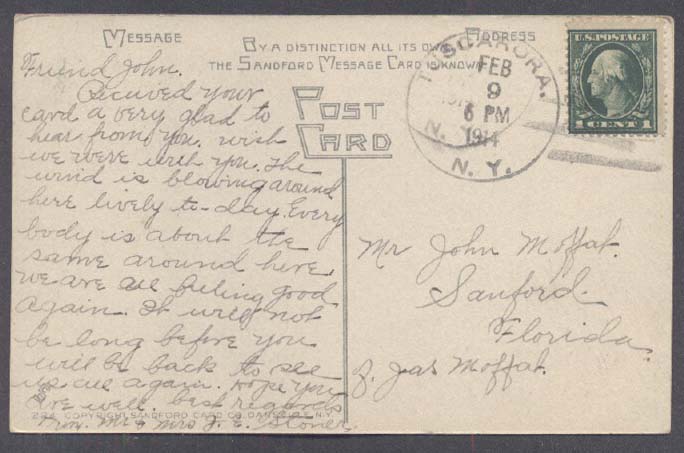 MESSAGE
BY A DISTINCTION ALL ITS OWN
ADDRESS
THE SANDFORD MESSAGE CARD IS KNOWN
POST
CARD
TUSCARORA.
FEB
9
6 PM
1914
N. Y.
U.S. POSTAGE
1 CENT 1
Friend John.
Recieved your
card a very glad to
hear from you. wish
we were with you. The
wind is blowing around
here lively to-day. Every
body is about the
same around here
we are all feeling good
again. It will not
be long before you
will be back to see
us all again. Hope you
are well. best regards
from Mr & Mrs J. E. Stoner.
Mr John Moffat.
Sanford
Florida.
Jas Moffat.
COPYRIGHT SANDFORD CARD CO. DANSVILLE, N.Y.